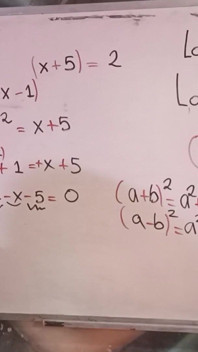 (x+5) = 2
x-1)
2 = x+5
+ 1 = +x + 5
-x-5 = 0
(a+b)² = a²
(a-b)² = a